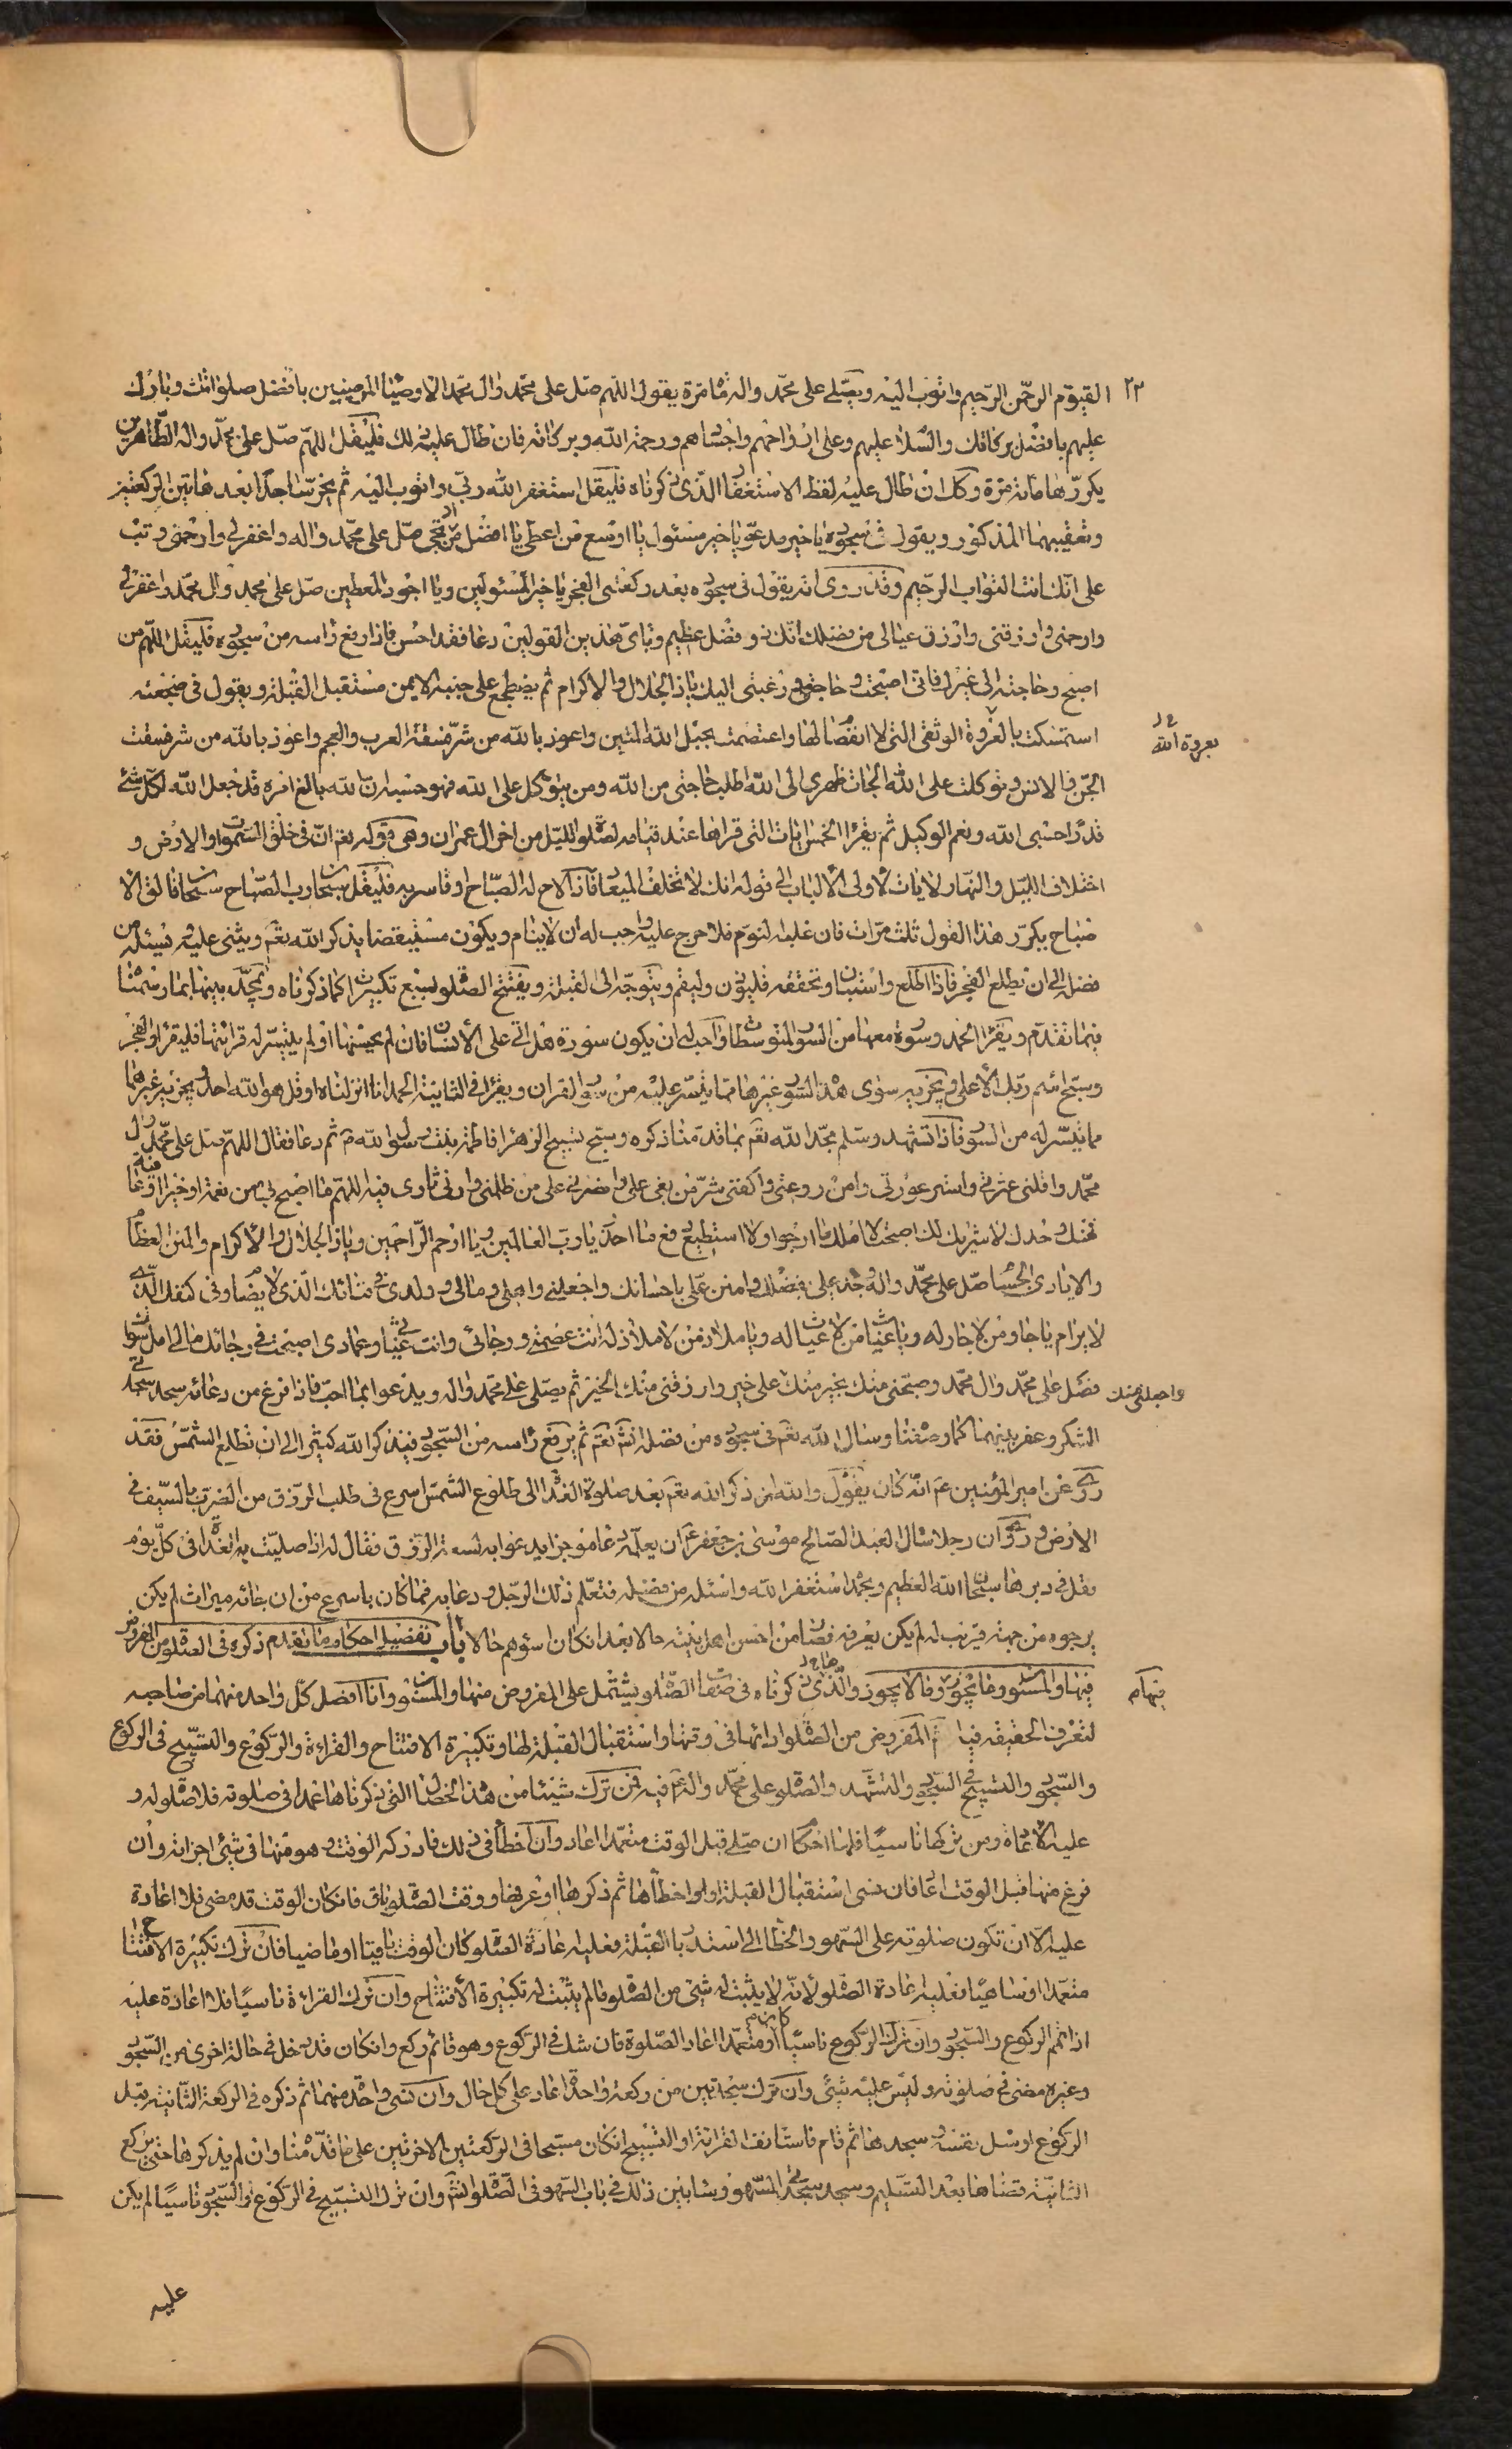 ٢٣ القيوم الرحمن الرحيم واتوب اليه ويصلى على محمد واله مائة مرة يقول اللهم صل على محمد وال محمد الاوصياء المرضيين بافضل صلواتك وبارك
عليهم بافضل بركاتك والسلام عليهم وعلى ارواحهم واجسادهم ورحمة الله وبركاته فان طال عليه ذلك فليقل اللهم صل على محمد واله الطاهرين
يكررها مائة مرة وكل ان طال عليه لفظ الاستغفار الذى ذكرناه فليقل استغفر الله ربى واتوب اليه ثم يخر ساجدا بعد هاتين الركعتين
وتعقيبهما المذكور ويقول فى سجوده يا خير مدعو يا خير مسئول يا اوسع من اعطى يا افضل من صل على محمد واله واغفر لى وارحمنى وتب
على انك انت التواب الرحيم وقد روى انه يقول فى سجوده بعد ركعتى الفجر يا خير المسئولين ويا اجود المعطين صل على محمد وال محمد واغفر لى
وارحمنى وارزقنى وارزق عيالى من فضلك انك ذو فضل عظيم وباى هذين القولين دعا فقد احسن فاذا رفع راسه من سجوده فليقل اللهم من
اصبح وحاجته الى غيرك فانى اصبحت وحاجتى ورغبتى اليك يا ذا الجلال والاكرام ثم يضطجع على جنبه الايمن مستقبل القبلة ويقول فى ضجعته
استمسكت بالعروة الوثقى التى لا انفصام لها واعتصمت بحبل الله المتين واعوذ بالله من شر فسقة العرب والعجم واعوذ بالله من شر فسقة
بعروة الله
الجن والانس وتوكلت على الله الجات ظهرى الى الله اطلب حاجتى من الله ومن يتوكل على الله فهو حسبه ان الله بالغ امره قد جعل الله لكل شئ
قدرا حسبى الله ونعم الوكيل ثم يقرا الخمس ايات التى قراها عند قيامه لصلوة الليل من اخر ال عمران وهى قوله تعم ان فى خلق السموات والارض و
اختلاف الليل والنهار لايات لاولى الالباب الى قوله انك لا تخلف الميعاد فاذا لاح له الصباح او قاربه فليقل سبحان رب الصباح سبحان فالق الا
صباح يكرر هذا القول ثلث مرات فان غلبه النوم فلا حرج عليه واحب له ان لا ينام ويكون مستيقضا يذكر الله تعم ويثنى عليه ويسئله من
فضله الى ان يطلع الفجر فاذا طلع واستبان وتحققه فليؤذن وليقم ويتوجه الى القبلة ويفتتح الصلوة بسبع تكبيرات كما ذكرناه ويمجده بينها بما رسمنا
فيما تقدم ويقرا الحمد وسورة معها من السور المتوسطات واحب له ان يكون سورة هل اتى على الانسان فان لم يحسنها او لم يتيسر له قرائتها فليقرا والفجر
وسبح اسم ربك الاعلى ويجزيه سوى هذه السور غيرها مما تيسر عليه من سور القران ويقرا فى الثانية الحمد وانا انزلناه او قل هو الله احد ويجزيه غيرهما
مما تيسر له من السور فاذا تشهد وسلم مجد الله تعم بما قدمنا ذكره وسبح تسبيح الزهرا فاطمة بنت رسول الله ص ثم دعا فقال اللهم صل على محمد وال
محمد واقلنى عثرتى واستر عورتى وامن روعتى واكفنى شر من بغى على وانصرنى على من ظلمنى وارنى ثارى فيه اللهم ما اصبح بى من نعمة او خير او عافية
فمنك وحدك لا شريك لك اصبحت لا املك ما ارجوا ولا استطيع دفع ما احذر يا رب العالمين ويا ارحم الراحمين ويا ذا الجلال والاكرام والمنن العظام
والايادى الحسان صل على محمد واله وجد على بفضلك وامنن على باحسانك واجعلنى واهلى ومالى وولدى فى الذى لا يضام وفى كنفك الذى
لا يرام يا جار من لا جار له ويا غياث من لا غياث له ويا ملاذ من لا ملاذ له انت عصمتى ورجائى وانت غياثى وعمادى اصبحت فى رجائك مالى امل سواك
واجعلنى منك
فصل على محمد وال محمد وصبحنى منك بخير على خير وارزقنى منك الخير ثم يصلى على محمد واله ويدعوا بما احب فاذا فرغ من دعائه سجد سجدتى
الشكر وعفر بينهما كما وصفنا وسال الله تعم فى سجوده من فضله انش تعم ثم يرفع راسه من السجود فيذكر الله كثيرا الى ان تطلع الشمس فقد
روى عن امير المؤمنين عم انه كان يقول والله ان ذكر الله تعم بعد صلوة الغداة الى طلوع الشمس اسرع فى طلب الرزق من الضرب بالسيف فى
الارض وروى ان رجلا سال العبد الصالح موسى بن جعفر عم ان يعلمه دعاء موجزا يدعوا به لسعة الرزق فقال له اذا صليت الغداة فى كل يوم
فقل فى دبرها سبحان الله العظيم وبحمده استغفر الله واسئله من فضله فتعلم ذلك الرجل ودعا به فما كان باسرع من ان جائه ميراث لم يكن
يرجوه من جهة قريب له لم يكن يعرفه فصار من احسن اهل بيته حالا بعد ان كان اسوئهم حالا باب تفصيل احكام ما تقدم ذكره فى الصلوة من المفروض
فيها والمسنون وما يجوز وما لا يجوز والذى ذكرناه فى صفة الصلوة يشتمل على المفروض منها والمسنون وانا افصل كل واحد منهما من صاحبه
فيهام
لتعرف الحقيقة فيه المفروض من الصلوة ادائها فى وقتها واستقبال القبلة لها وتكبيرة الافتتاح والقراءة والركوع والتسبيح فى الركوع
والسجود والتسبيح فى السجود والتشهد والصلوة على محمد واله عم فيه فمن ترك شيئا من هذه الخصال التى ذكرناها عمدا فى صلوته فلا صلوة له و
عليه الاعادة ومن تركها ناسيا فلها احكام ان صلى قبل الوقت متعمدا اعاد وان اخطأ فى ذلك فادركه الوقت وهو منها فى شئ اجزاته وان
فرغ منها قبل الوقت اعاد فان نسى استقبال القبلة او اخطأها ثم ذكرها او عرفها ووقت الصلوة باق فان كان الوقت قد مضى فلا اعادة
عليه الا ان تكون صلوته على السهو والخطا الى استدبار القبلة فعليه اعادة الصلوة كان الوقت باقيا او ماضيا فان ترك تكبيرة الافتتاح
متعمدا او ساهيا فعليه اعادة الصلوة لانه لا يثبت له شئ من الصلوة مالم يثبت له تكبيرة الافتتاح وان ترك القراءة ناسيا فلا اعادة عليه
اذا تمم الركوع والسجود وان ترك الركوع ناسيا او متعمدا اعاد الصلوة فان شك فى الركوع وهو قائم ركع وان كان قد دخل فى حالة اخرى من السجود
وغيره مضى فى صلوته وليس عليه شئ وان ترك سجدتين من ركعة واحدة اعاد على كل حال وان نسى واحدة منهما ثم ذكره فى الركعة الثانية قبل
الركوع ارسل نفسه وسجدها ثم قام فاستانف القرائة او التسبيح ان كان مسبحا فى الركعتين الاخرتين على ما قدمنا وان لم يذكرها حتى يركع
الثانية قضاها بعد التسليم وسجد سجدتى السهو وسابين ذلك فى باب السهو فى الصلوة انش وان ترك التسبيح فى الركوع او السجود ناسيا لم يكن
عليه